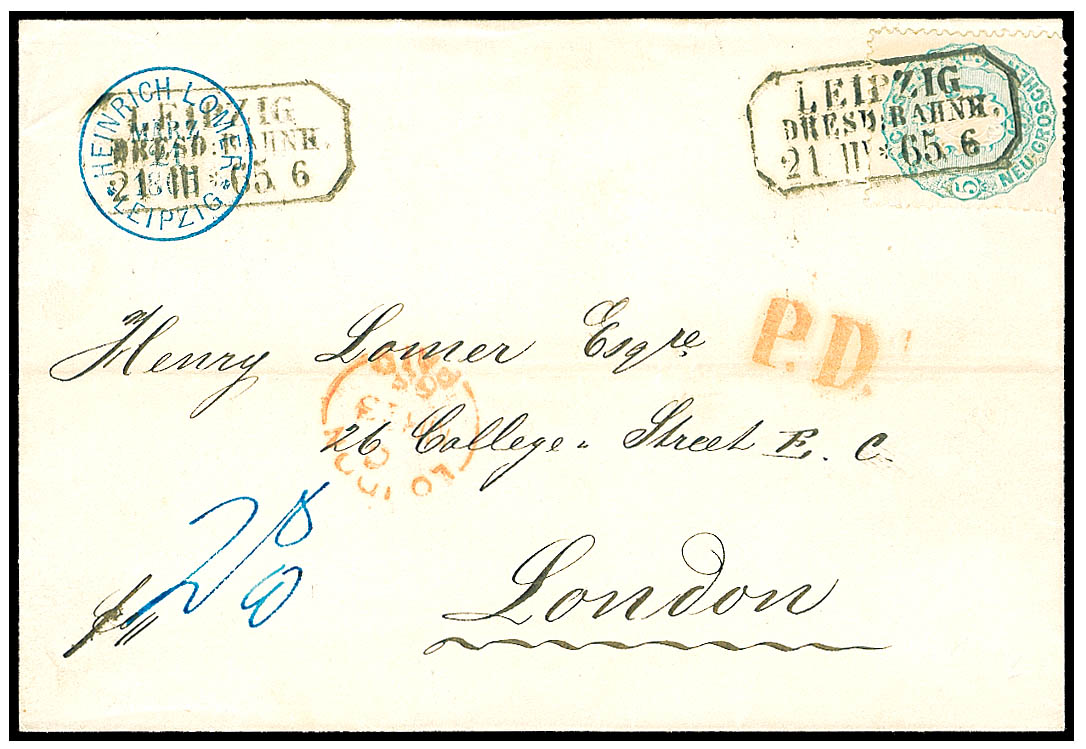 HEINRICH LOMER
MÄRZ
21
* LEIPZIG *
LEIPZIG
DRESD. BAHNH.
21 III * 65. 6
LEIPZIG
DRESD. BAHNH.
21 III * 65. 6
NEU-GROSCHEN
5
P. D.
Henry Lomer Esqre
26 College Street E. C.
London
PAID
LONDON